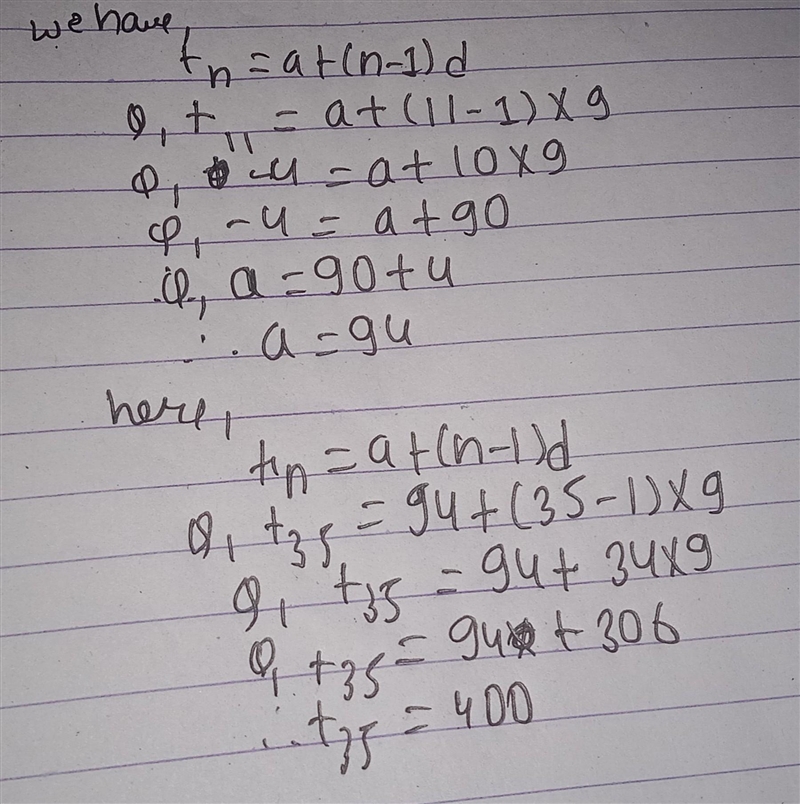 we have,
tn = a+(n-1)d
or, t11 = a+(11-1)×9
or, -4 = a+10×9
or, -4 = a+90
or, a = 90+4
∴ a = 94
here,
tn = a+(n-1)d
or, t35 = 94+(35-1)×9
or, t35 = 94+34×9
or, t35 = 94 + 306
∴ t35 = 400